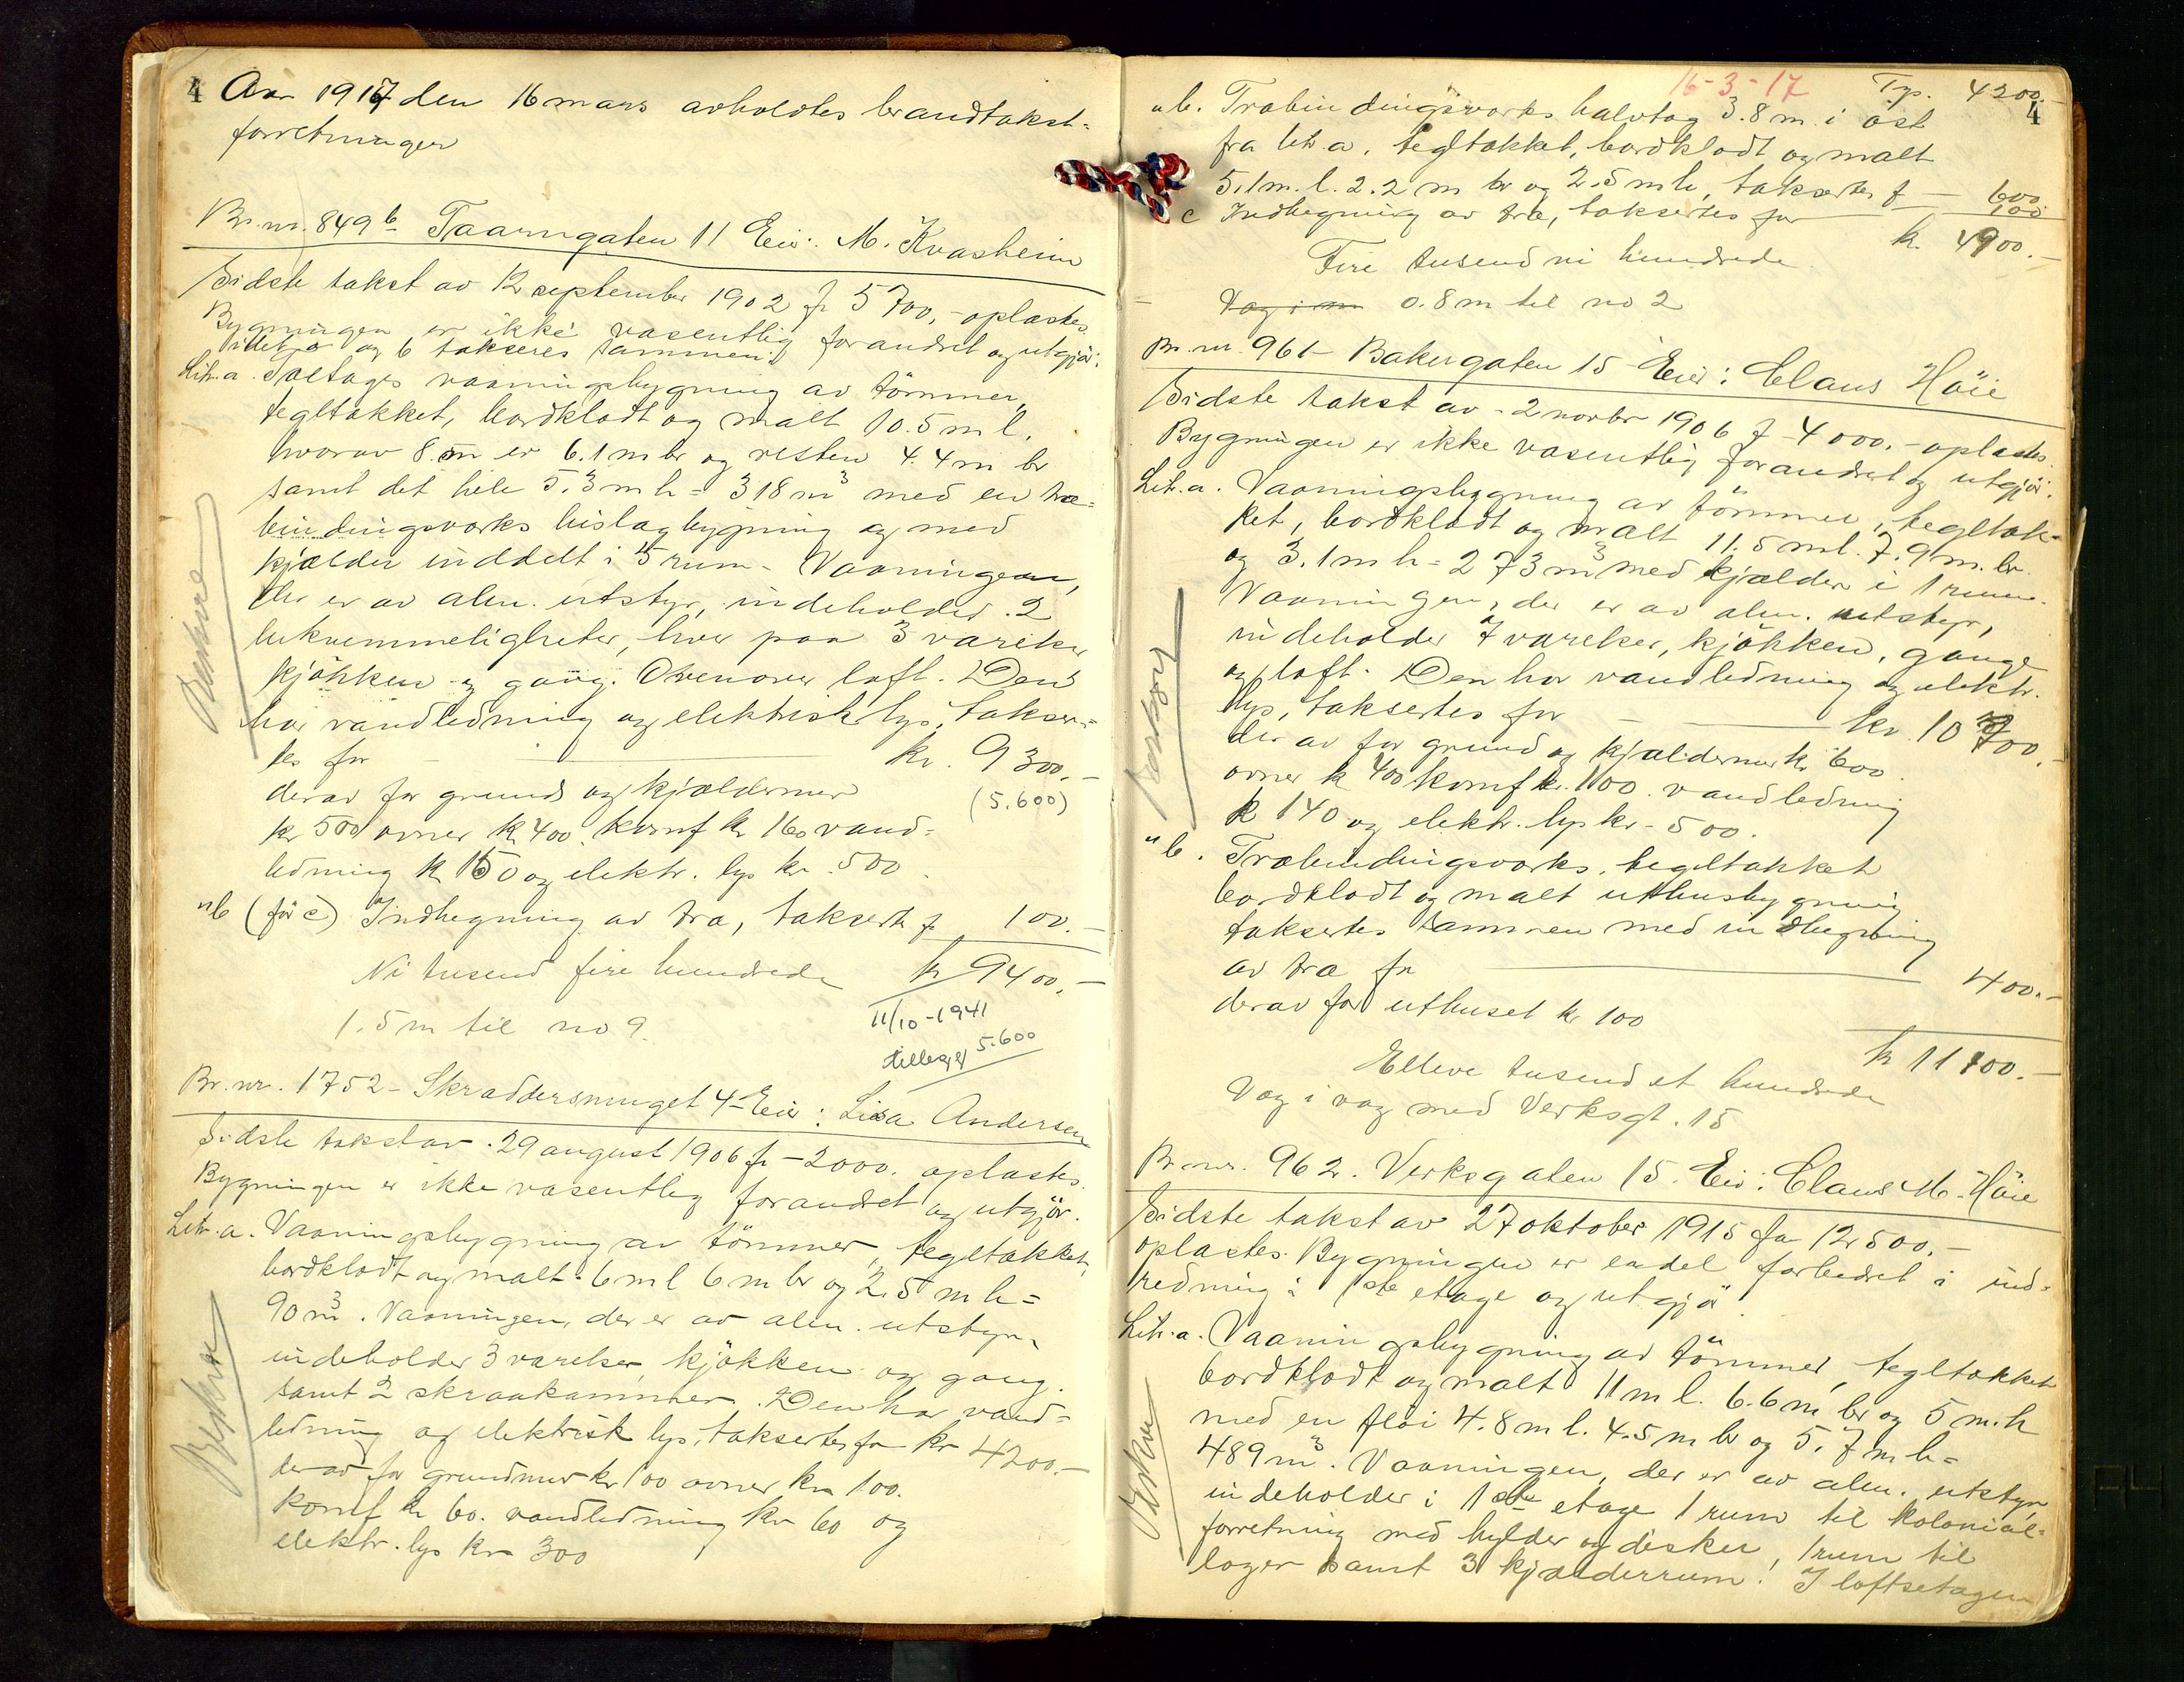 4 Aar 1917 den 16 mars avholdtes brandtakst-
forretninger
Br. nr. 849 b Taarngaten 11 Eier: M. Kvasheim
Sidste takst av 12 september 1902 fr 5700,- oplæstes.
Bygningen er ikke væsentlig forandret og utgjör:
Litr a og b takseres sammen:
Litr. a. Toetages vaaningsbygning av tömmer,
tegltækket, bordklædt og malt 10.5 m l.
hvorav 8. m er 6.1 m br og resten 4.4 m br
samt det hele 5.3 m h = 318 m3 med en træ-
bindingsverks bislagbygning og med
kjælder inddelt i 5 rum - Vaaningen,
der er av alm. utstyr, indeholder 2
bekvemmeligheter, hver paa 3 værelser
kjökken og gang. Ovenover loft. Den
har vandledning og elektrisk lys, takser-
tes for kr. 9300.-
derav for grund og kjældermur (5.600)
kr 500 ovner kr 400. komf kr 160 vand-
ledning kr 150 og elektr. lys kr. 500.
" b (för c) Indhegning av træ, taksert fr 100.-
Ni tusend fire hundrede kr 9400.-
1.5 m til no 9. 11/10-1941
tillegg 5.600
Br. nr. 1752 - Skræddersmuget 4 - Eier: Lisa Andersen
Sidste takst av 29 august 1906 fr - 2000. oplæstes.
Bygningen er ikke væsentlig forandret og utgjör.
Litr. a. Vaaningsbygning av tömmer, tegltækket,
bordklædt og malt 6 m l 6 m br og 2.5 m h =
90 m3. Vaaningen, der er av alm. utstyr,
indeholder 3 værelser, kjökken og gang.
samt 2 skraakammer. Den har vand-
ledning og elektrisk lys, taksertes for kr 4200.-
derav for grundmur kr 100 ovner kr 100.
komf kr 60. vandledning kr 60 og
elektr. lys kr 300
16-3-17 Trp. 4200.-
4
" b. Træbindingsverks halvtag 3.8 m i öst
fra litr a. tegltækket, bordklædt og malt
5.1 m. l. 2.2 m br og 2.5 m h, taksertes f - 600
c Indhegning av træ, taksertes for 100
k. 4900.-
Fire tusend ni hundrede
Væg i m 0.8 m til no 2
Br. nr. 961 - Bakergaten 15 - Eier: Claus Höie
Sidste takst av - 2 novbr 1906 f - 4000.- oplæstes.
Bygningen er ikke væsentlig forandret og utgjör.
Litr. a. Vaaningsbygning av tömmer, tegltæk-
ket, bordklædt og malt 11.5 m l. 7.9 m. br.
og 3.1 m h = 273 m3 med kjælder i 1 rum.
Vaaningen, der er av alm. utstyr,
indeholder 7 værelser, kjökken, gange
og loft. Den har vandledning og elektr.
lys, taksertes for kr. 10 700.-
derav for grund og kjældermur kr 600.
ovner kr 400 komf kr. 100. vandledning
kr 140 og elektr. lys kr. 500.
" b. Træbindingsverks, tegltækket
bordklædt og malt uthusbygning
taksertes sammen med indhegning
av træ for 400.-
derav for uthuset kr 100
kr 11100.-
Elleve tusend et hundrede
Væg i væg med Verksgt. 15
Br. nr. 962. Verksgaten 15. Eier: Claus M. Höie
Sidste takst av 27 oktober 1915 for 12500.-
oplæstes. Bygningen er endel forbedret i ind-
redning i 1ste etage og utgjör
Litr. a. Vaaningsbygning av tömmer, tegltækket
bordklædt og malt 11 m l. 6.6 m br og 5 m. h
med en flöi 4.8 m l. 4.5 m br og 5.7 m h =
489 m3. Vaaningen, der er av alm. utstyr,
indeholder i 1ste etage 1 rum til kolonial-
forretning med hylder og disker, 1 rum til
lager samt 3 kjælderrum. I loftsetagen